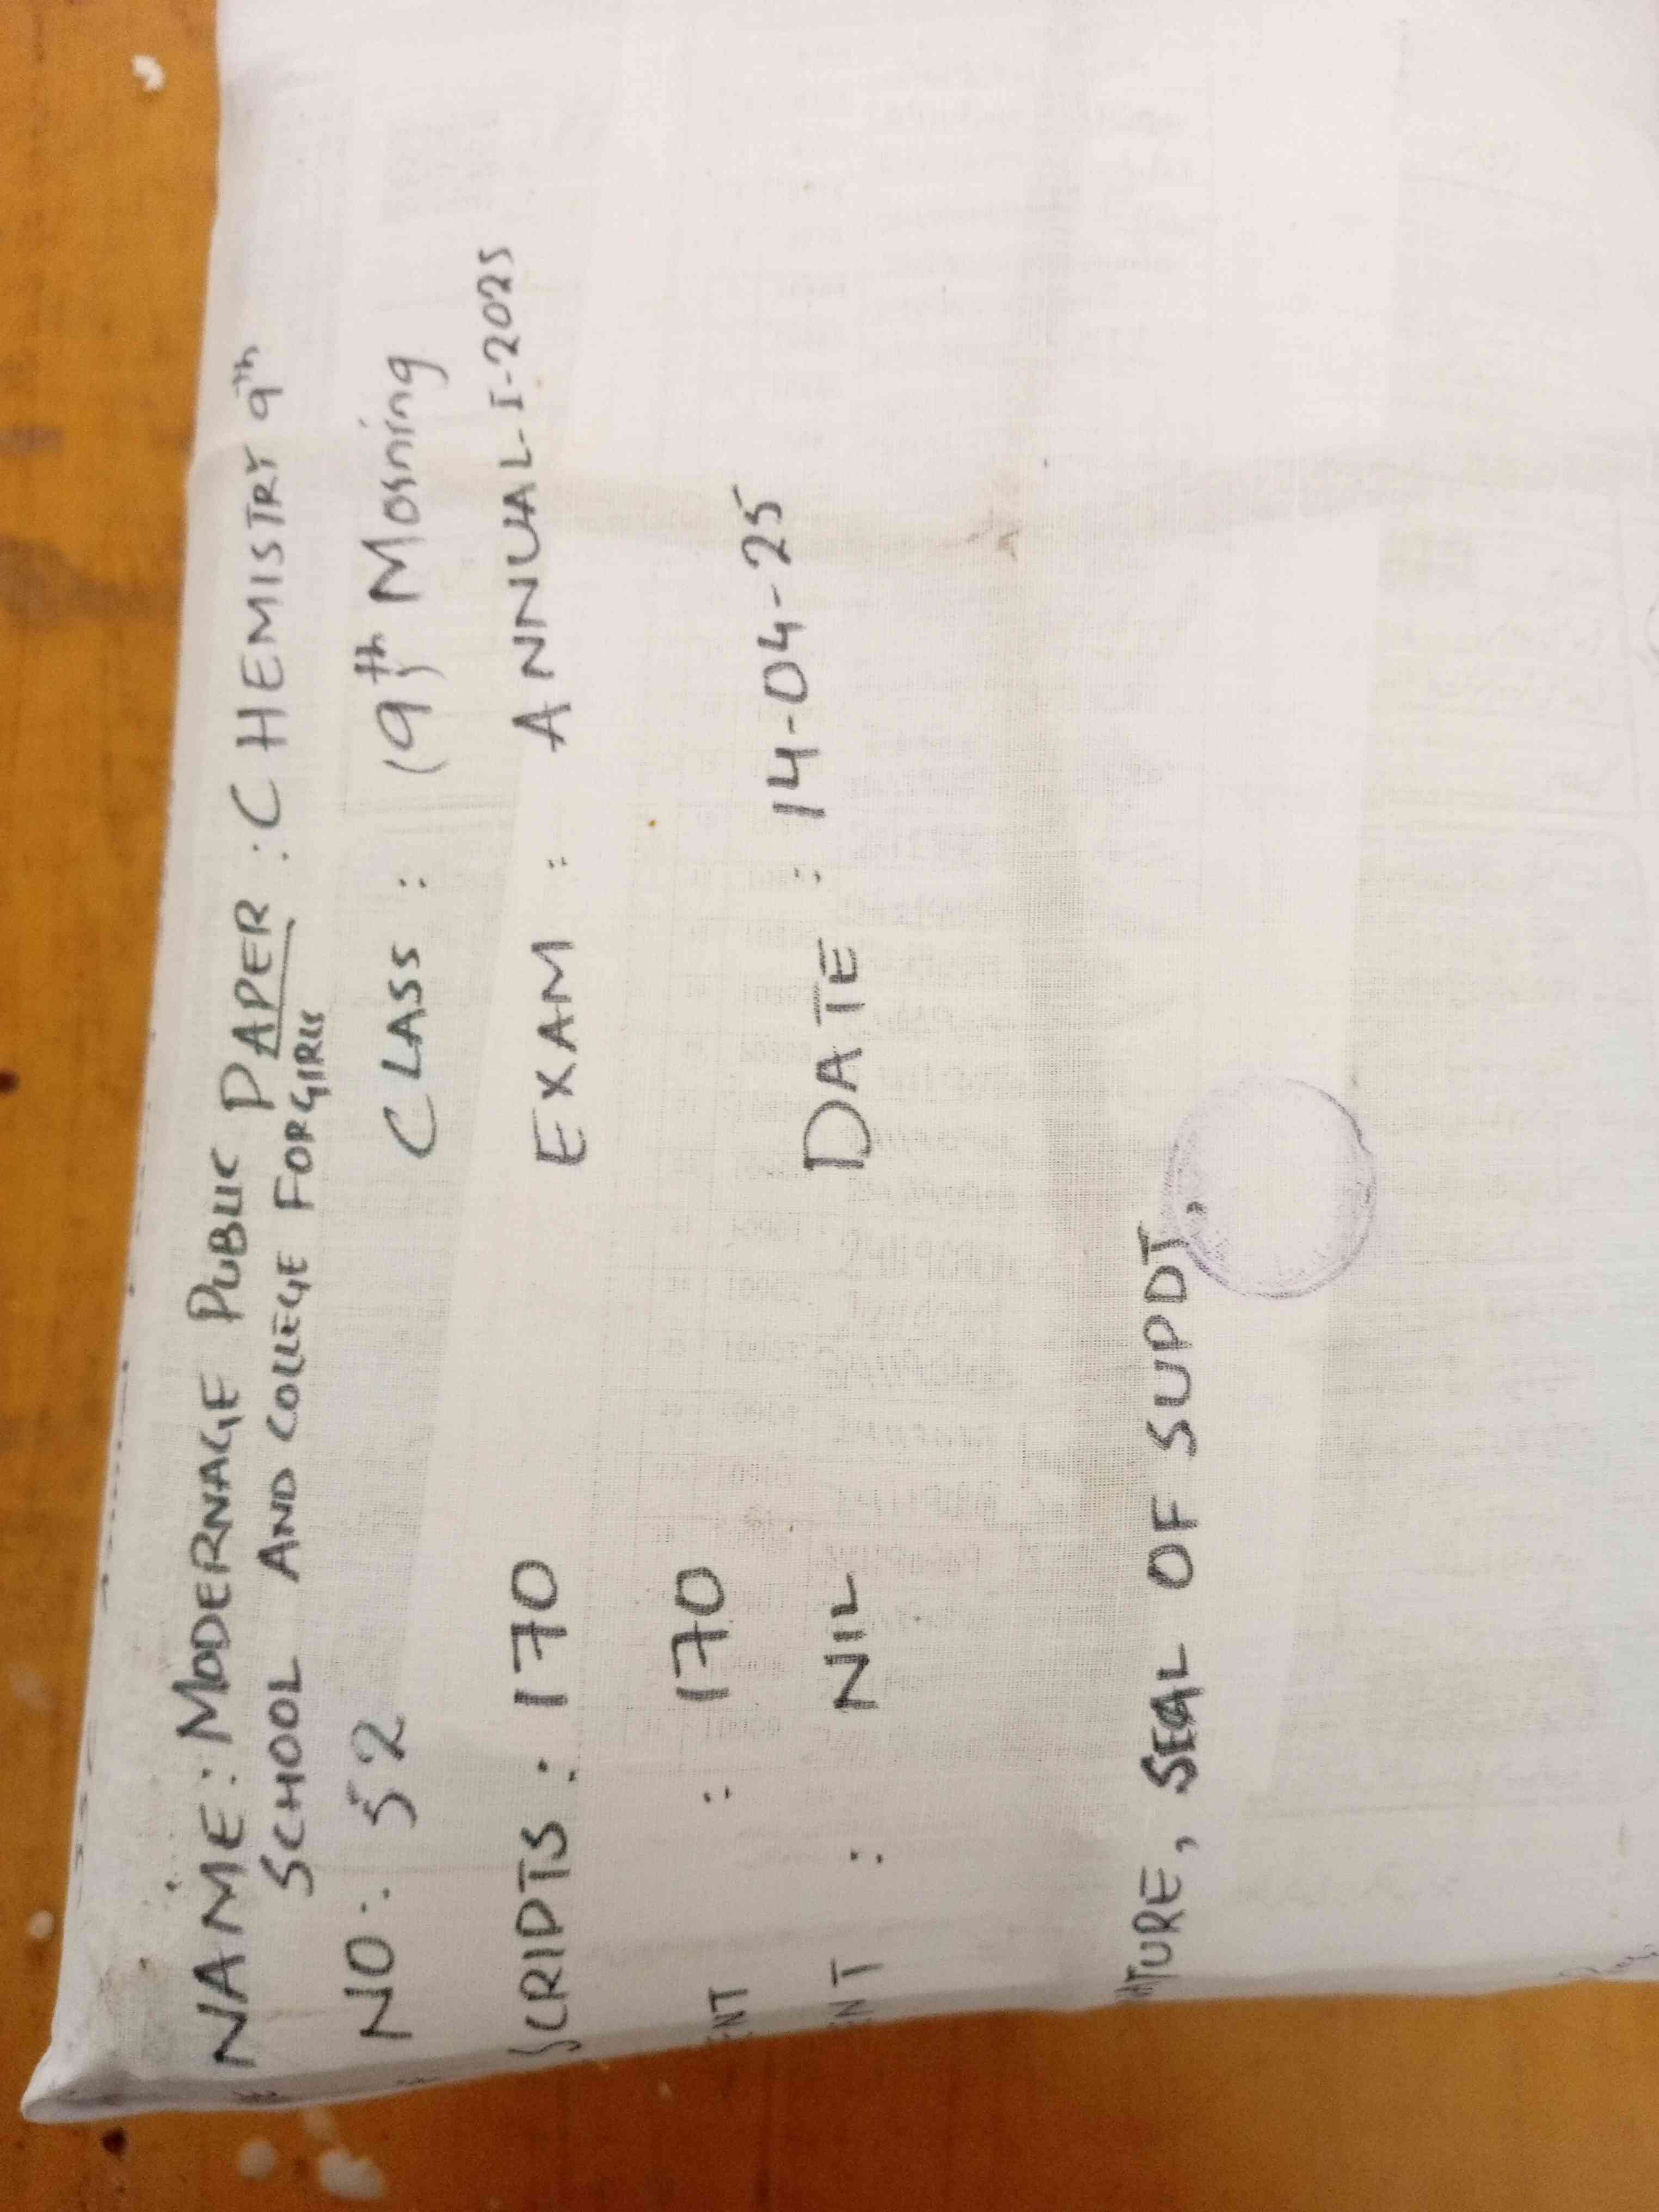 NAME : MODERNAGE PUBLIC PAPER : CHEMISTRY 9th
SCHOOL AND COLLEGE FOR GIRLS
NO : 52 CLASS : (9th) Morning
SCRIPTS : 170 EXAM : ANNUAL-I-2025
ENT : 170
ENT : NIL DATE : 14-04-25
ATURE, SEAL OF SUPDT,